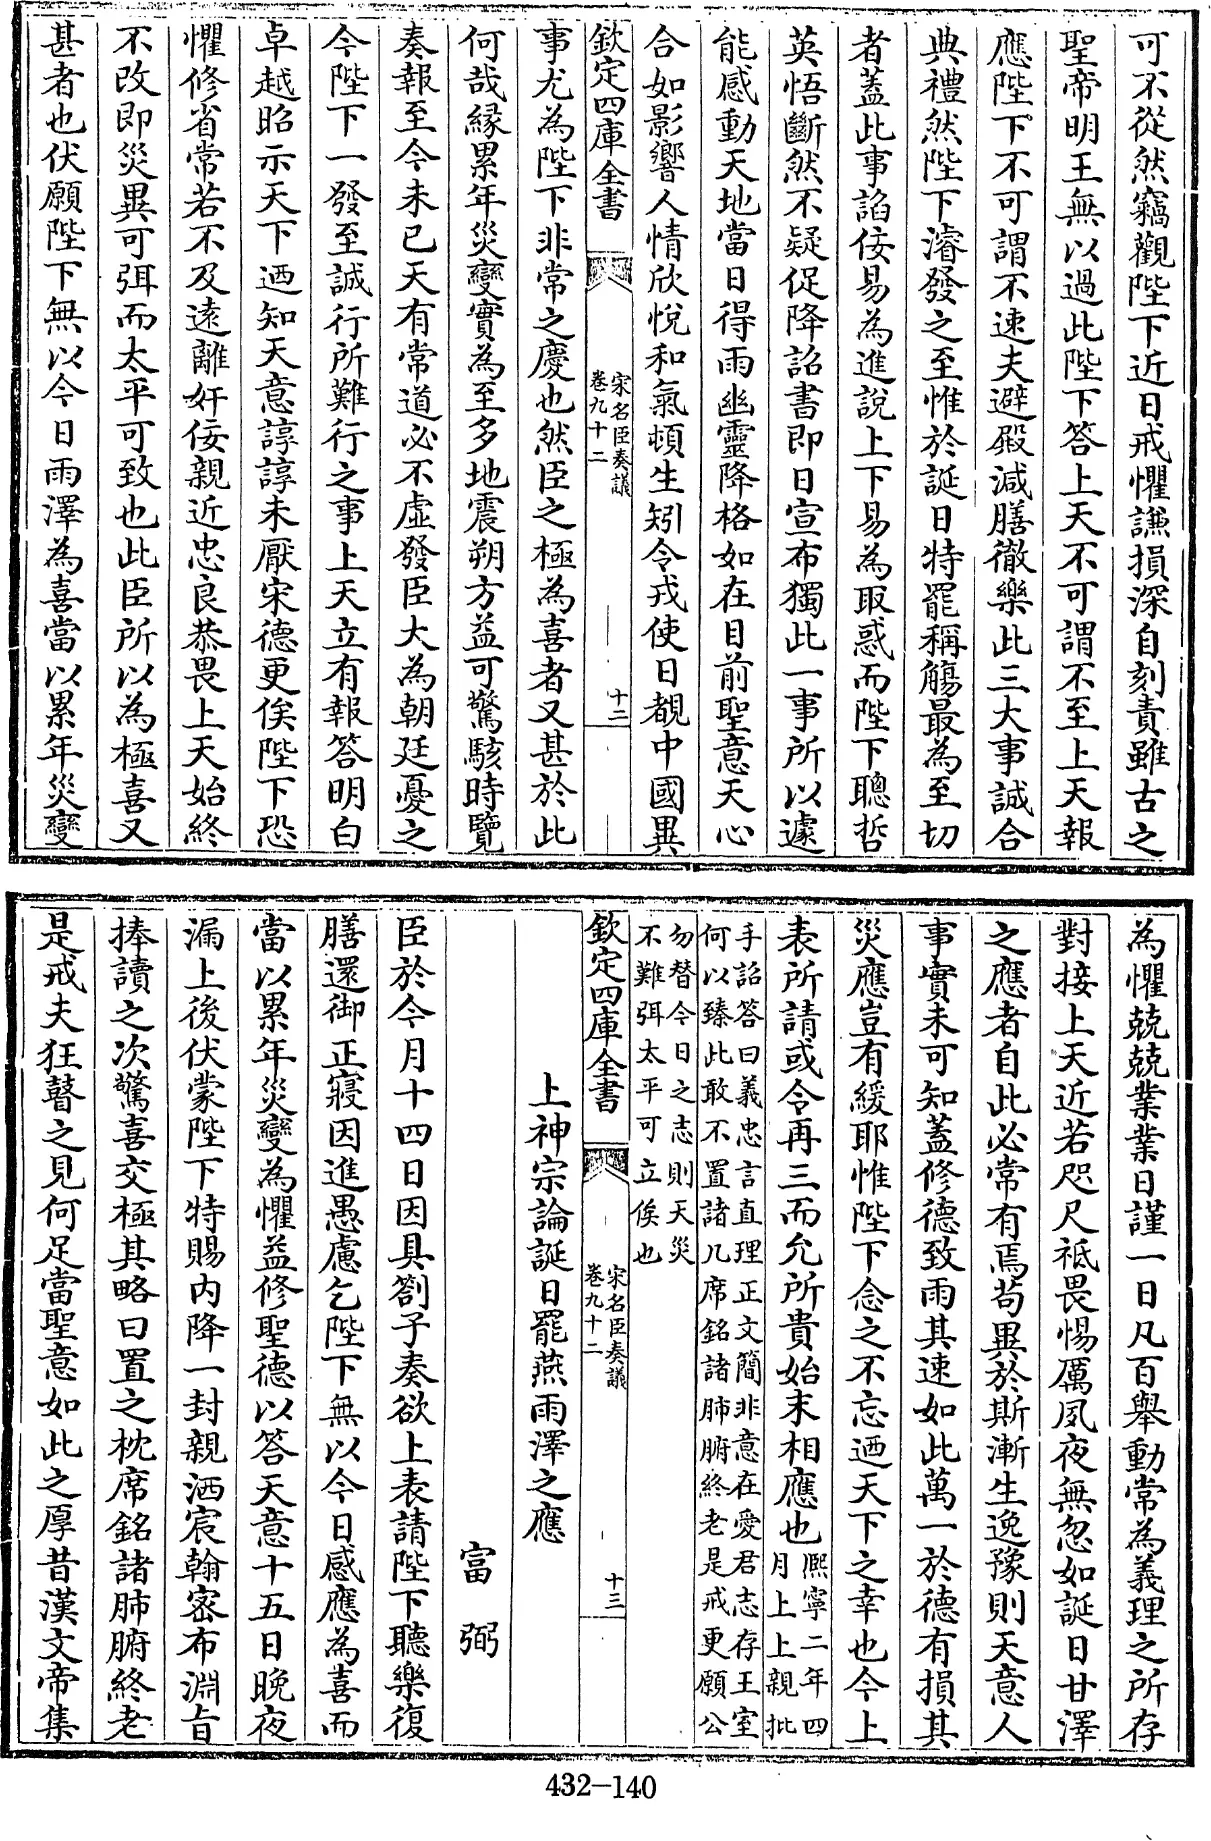 可不從然竊觀陛下近日戒懼謙損深自刻責雖古之
聖帝明王無以過此陛下答上天不可謂不至上天報
應陛下不可謂不速夫避殿減膳徹樂此三大事誠合
典禮然陛下濬發之至惟於誕日特罷稱觴最為至切
者蓋此事諂佞易為進說上下易為取惑而陛下聰哲
英悟斷然不疑促降詔書即日宣布獨此一事所以遽
能感動天地當日得雨幽靈降格如在目前聖意天心
合如影響人情欣悅和氣頓生矧令戎使日覩中國異
欽定四庫全書
宋名臣奏議
卷九十二
十二
事尤為陛下非常之慶也然臣之極為喜者又甚於此
何哉緣累年災變實為至多地震朔方益可驚駭時覽
奏報至今未已天有常道必不虛發臣大為朝廷憂之
今陛下一發至誠行所難行之事上天立有報答明白
卓越昭示天下迺知天意諄諄未厭宋德更俟陛下恐
懼修省常若不及遠離奸佞親近忠良恭畏上天始終
不改即災異可弭而太平可致也此臣所以為極喜又
甚者也伏願陛下無以今日雨澤為喜當以累年災變
為懼兢兢業業日謹一日凡百舉動常為義理之所存
對接上天近若咫尺祗畏惕厲夙夜無忽如誕日甘澤
之應者自此必常有焉苟異於斯漸生逸豫則天意人
事實未可知蓋修德致雨其速如此萬一於德有損其
災應豈有緩耶惟陛下念之不忘迺天下之幸也今上
表所請或令再三而允所貴始末相應也熙寧二年四
月上上親批
手詔答曰義忠言直理正文簡非意在愛君志存王室
何以臻此敢不置諸几席銘諸肺腑終老是戒更願公
勿替今日之志則天災
不難弭太平可立俟也
欽定四庫全書
宋名臣奏議
卷九十二
十三
上神宗論誕日罷燕雨澤之應
富弼
臣於今月十四日因具劄子奏欲上表請陛下聽樂復
膳還御正寢因進愚慮乞陛下無以今日感應為喜而
當以累年災變為懼益修聖德以答天意十五日晚夜
漏上後伏蒙陛下特賜內降一封親洒宸翰密布淵旨
捧讀之次驚喜交極其略曰置之枕席銘諸肺腑終老
是戒夫狂瞽之見何足當聖意如此之厚昔漢文帝集
432-140